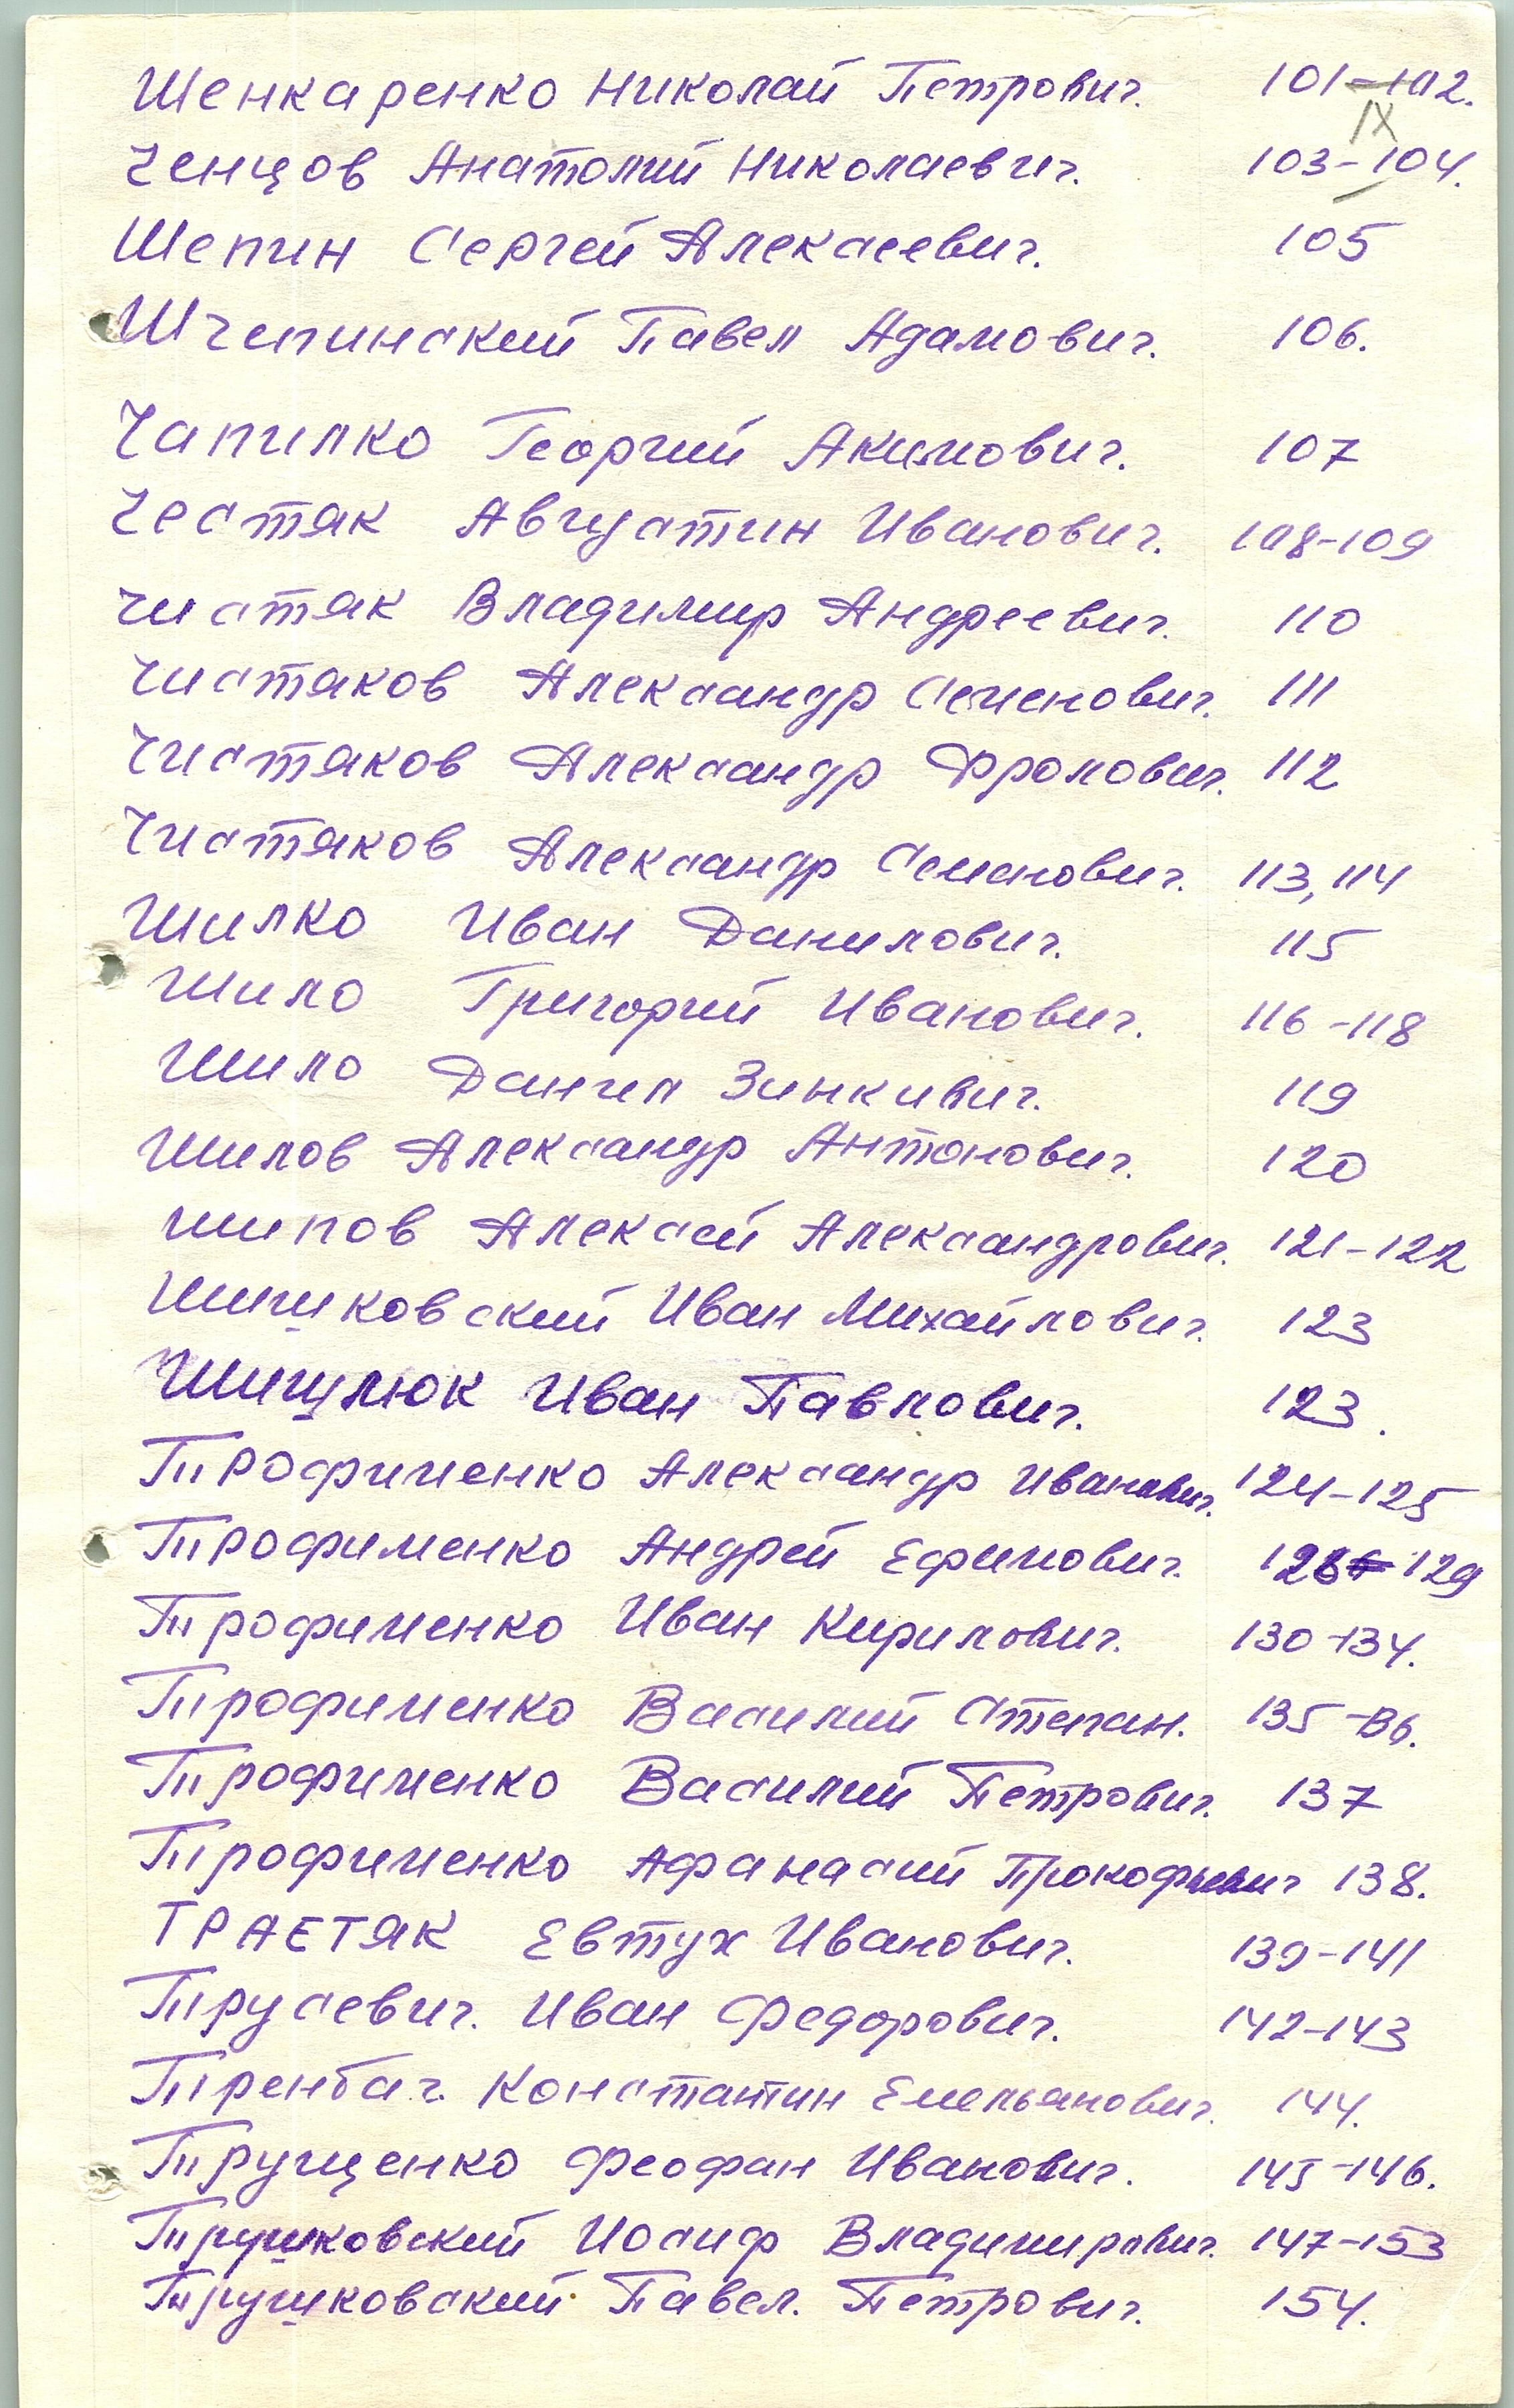 Шенкаренко Николай Петрович. 101-102.
IX
Ченцов Анатолий Николаевич. 103-104.
Шепин Сергей Алексеевич. 105
Шчепинский Павел Адамович. 106.
Чапилко Георгий Акимович. 107
Честяк Августин Иванович. 108-109
Чистяк Владимир Андреевич. 110
Чистяков Александр Семенович. 111
Чистяков Александр Фролович. 112
Чистяков Александр Семенович. 113, 114
Шилко Иван Данилович. 115
Шило Григорий Иванович. 116-118
Шило Данил Зинкивич. 119
Шилов Александр Антонович. 120
Шипов Алексей Александрович. 121-122
Шишковский Иван Михайлович. 123
Шишулюк Иван Павлович. 123.
Трофименко Александр Иванович. 124-125
Трофименко Андрей Ефимович. 129
Трофименко Иван Кирилович. 130-134.
Трофименко Василий Степан. 135-136.
Трофименко Василий Петрович. 137
Трофименко Афанасий Прокофьевич 138.
ТРАЕТЯК Евтух Иванович. 139-141
Трусевич. Иван Федорович. 142-143
Тренбач. Константин Емельянович. 144.
Трущенко Феофан Иванович. 145-146.
Трушковский Иосиф Владимирович. 147-153
Трушковский Павел. Петрович. 154.